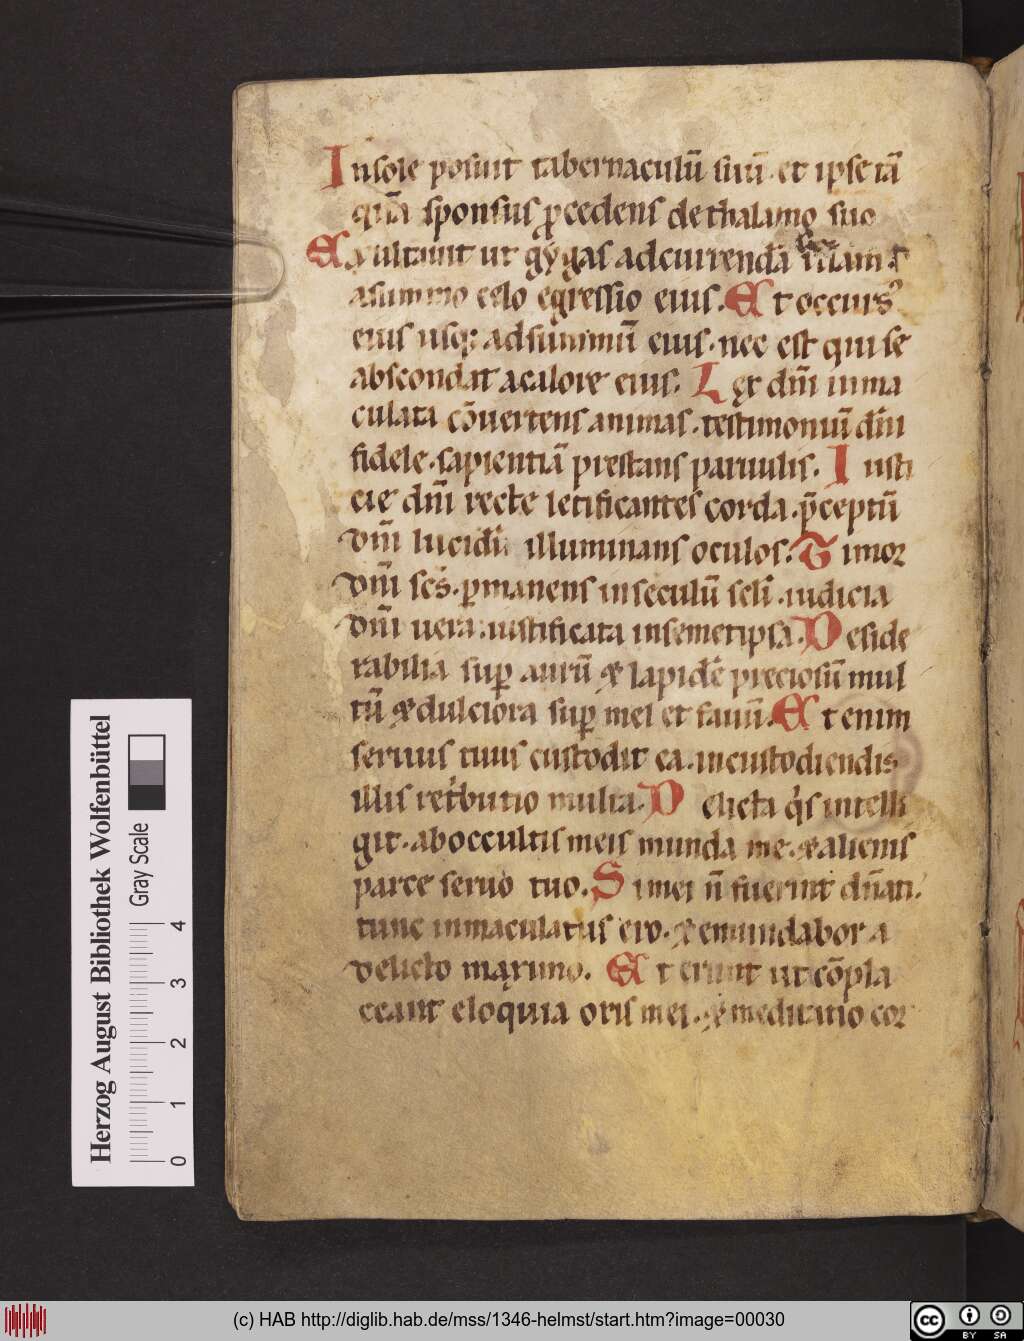 In sole posuit tabernaculū suū · et ipse tā
quā sponsus p̄cedens de thalamo suo
Exultauit ut gygas ad currendā uiam · A
a summo celo egressio eius. Et occurs᷒
eius usq; ad summū eius · nec est qui se
abscondat a calore eius. Lex dn̄i inma
culata cōuertens animas · testimoniū dn̄i
fidele · sapientiā prestans paruulis. Iusti
cie dn̄i recte letificantes corda · p̄ceptū
dn̄i lucidū illuminans oculos. Timor
dn̄i sc̄s · ꝑmanens in seculū seli · iudicia
dn̄i uera · iustificata in semetipsa. Deside
rabilia suꝑ aurū & lapidē preciosū mul
tū & dulciora suꝑ mel et fauū. Etenim
seruus tuus custodit ea · in custodiendis
illis ret'butio multa. Delicta q's intelli
git · ab occultis meis munda me · & alienis
parce seruo tuo. Si mei n̄ fuerint dn̄ati ·
tunc inmaculatus ero · & emundabor a
delicto maximo. Et erunt ut cōpla
ceant eloquia oris mei · & meditatio cor
Herzog August Bibliothek Wolfenbüttel
Gray Scale
0 1 2 3 4
(c) HAB http://diglib.hab.de/mss/1346-helmst/start.htm?image=00030
cc BY SA